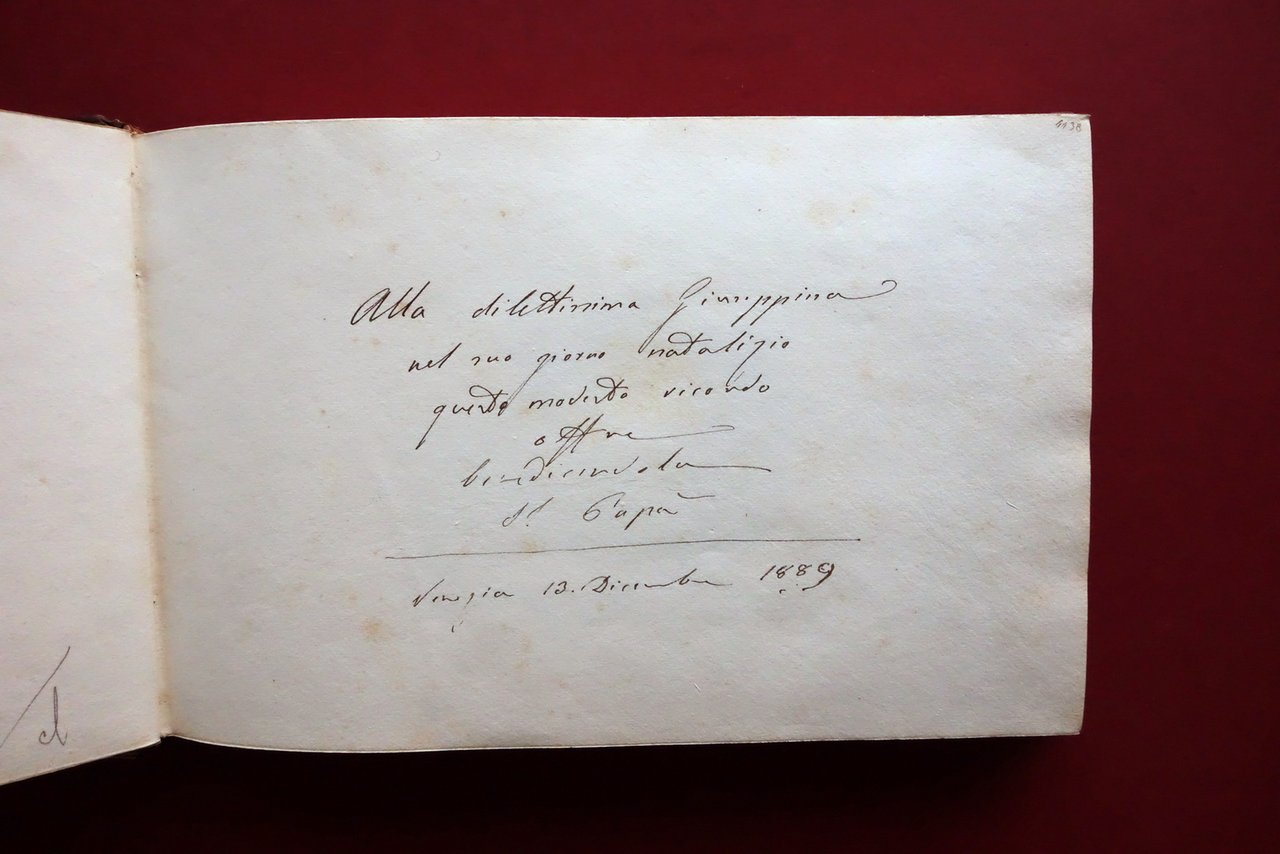 4138
Alla dilettissima Giuseppina
nel suo giorno natalizio
questo modesto ricordo
offre
benedicendola
Il Papà
Venezia 13. Dicembre 1889
cl